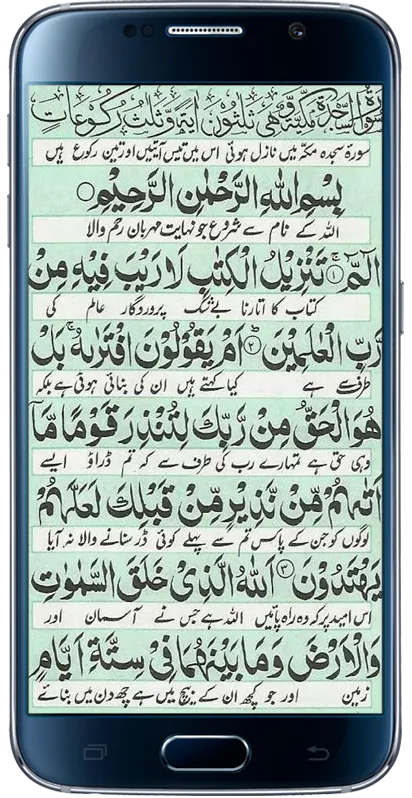 سورة السجدة مكية وهى ثلثون اية وثلث ركوعات
سورۂ سجدہ مکہ میں نازل ہوئی اس میں تیس آیتیں اور تین رکوع ہیں
بِسْمِ اللّٰهِ الرَّحْمٰنِ الرَّحِيْمِ
اللہ کے نام سے شروع جو نہایت مہربان رحم والا
الٓمّٓ ۚ﴿۱﴾ تَنْزِيْلُ الْكِتٰبِ لَا رَيْبَ فِيْهِ مِنْ
کتاب کا اتارنا بے شک پروردگار عالم کی
رَّبِّ الْعٰلَمِيْنَ ؕ﴿۲﴾ اَمْ يَقُوْلُوْنَ افْتَرٰىهُ ۚ بَلْ
طرف سے ہے کیا کہتے ہیں ان کی بنائی ہوئی ہے بلکہ
هُوَ الْحَقُّ مِنْ رَّبِّكَ لِتُنْذِرَ قَوْمًا مَّاۤ
وہی حق ہے تمہارے رب کی طرف سے کہ تم ڈراؤ ایسے
اَتٰىهُمْ مِّنْ نَّذِيْرٍ مِّنْ قَبْلِكَ لَعَلَّهُمْ
لوگوں کو جن کے پاس تم سے پہلے کوئی ڈر سنانے والا نہ آیا
يَهْتَدُوْنَ ﴿۳﴾ اَللّٰهُ الَّذِيْ خَلَقَ السَّمٰوٰتِ
اس امید پر کہ وہ راہ پائیں اللہ ہے جس نے آسمان اور
وَالْاَرْضَ وَمَا بَيْنَهُمَا فِيْ سِتَّةِ اَيَّامٍ
زمین اور جو کچھ ان کے بیچ میں ہے چھ دن میں بنائے